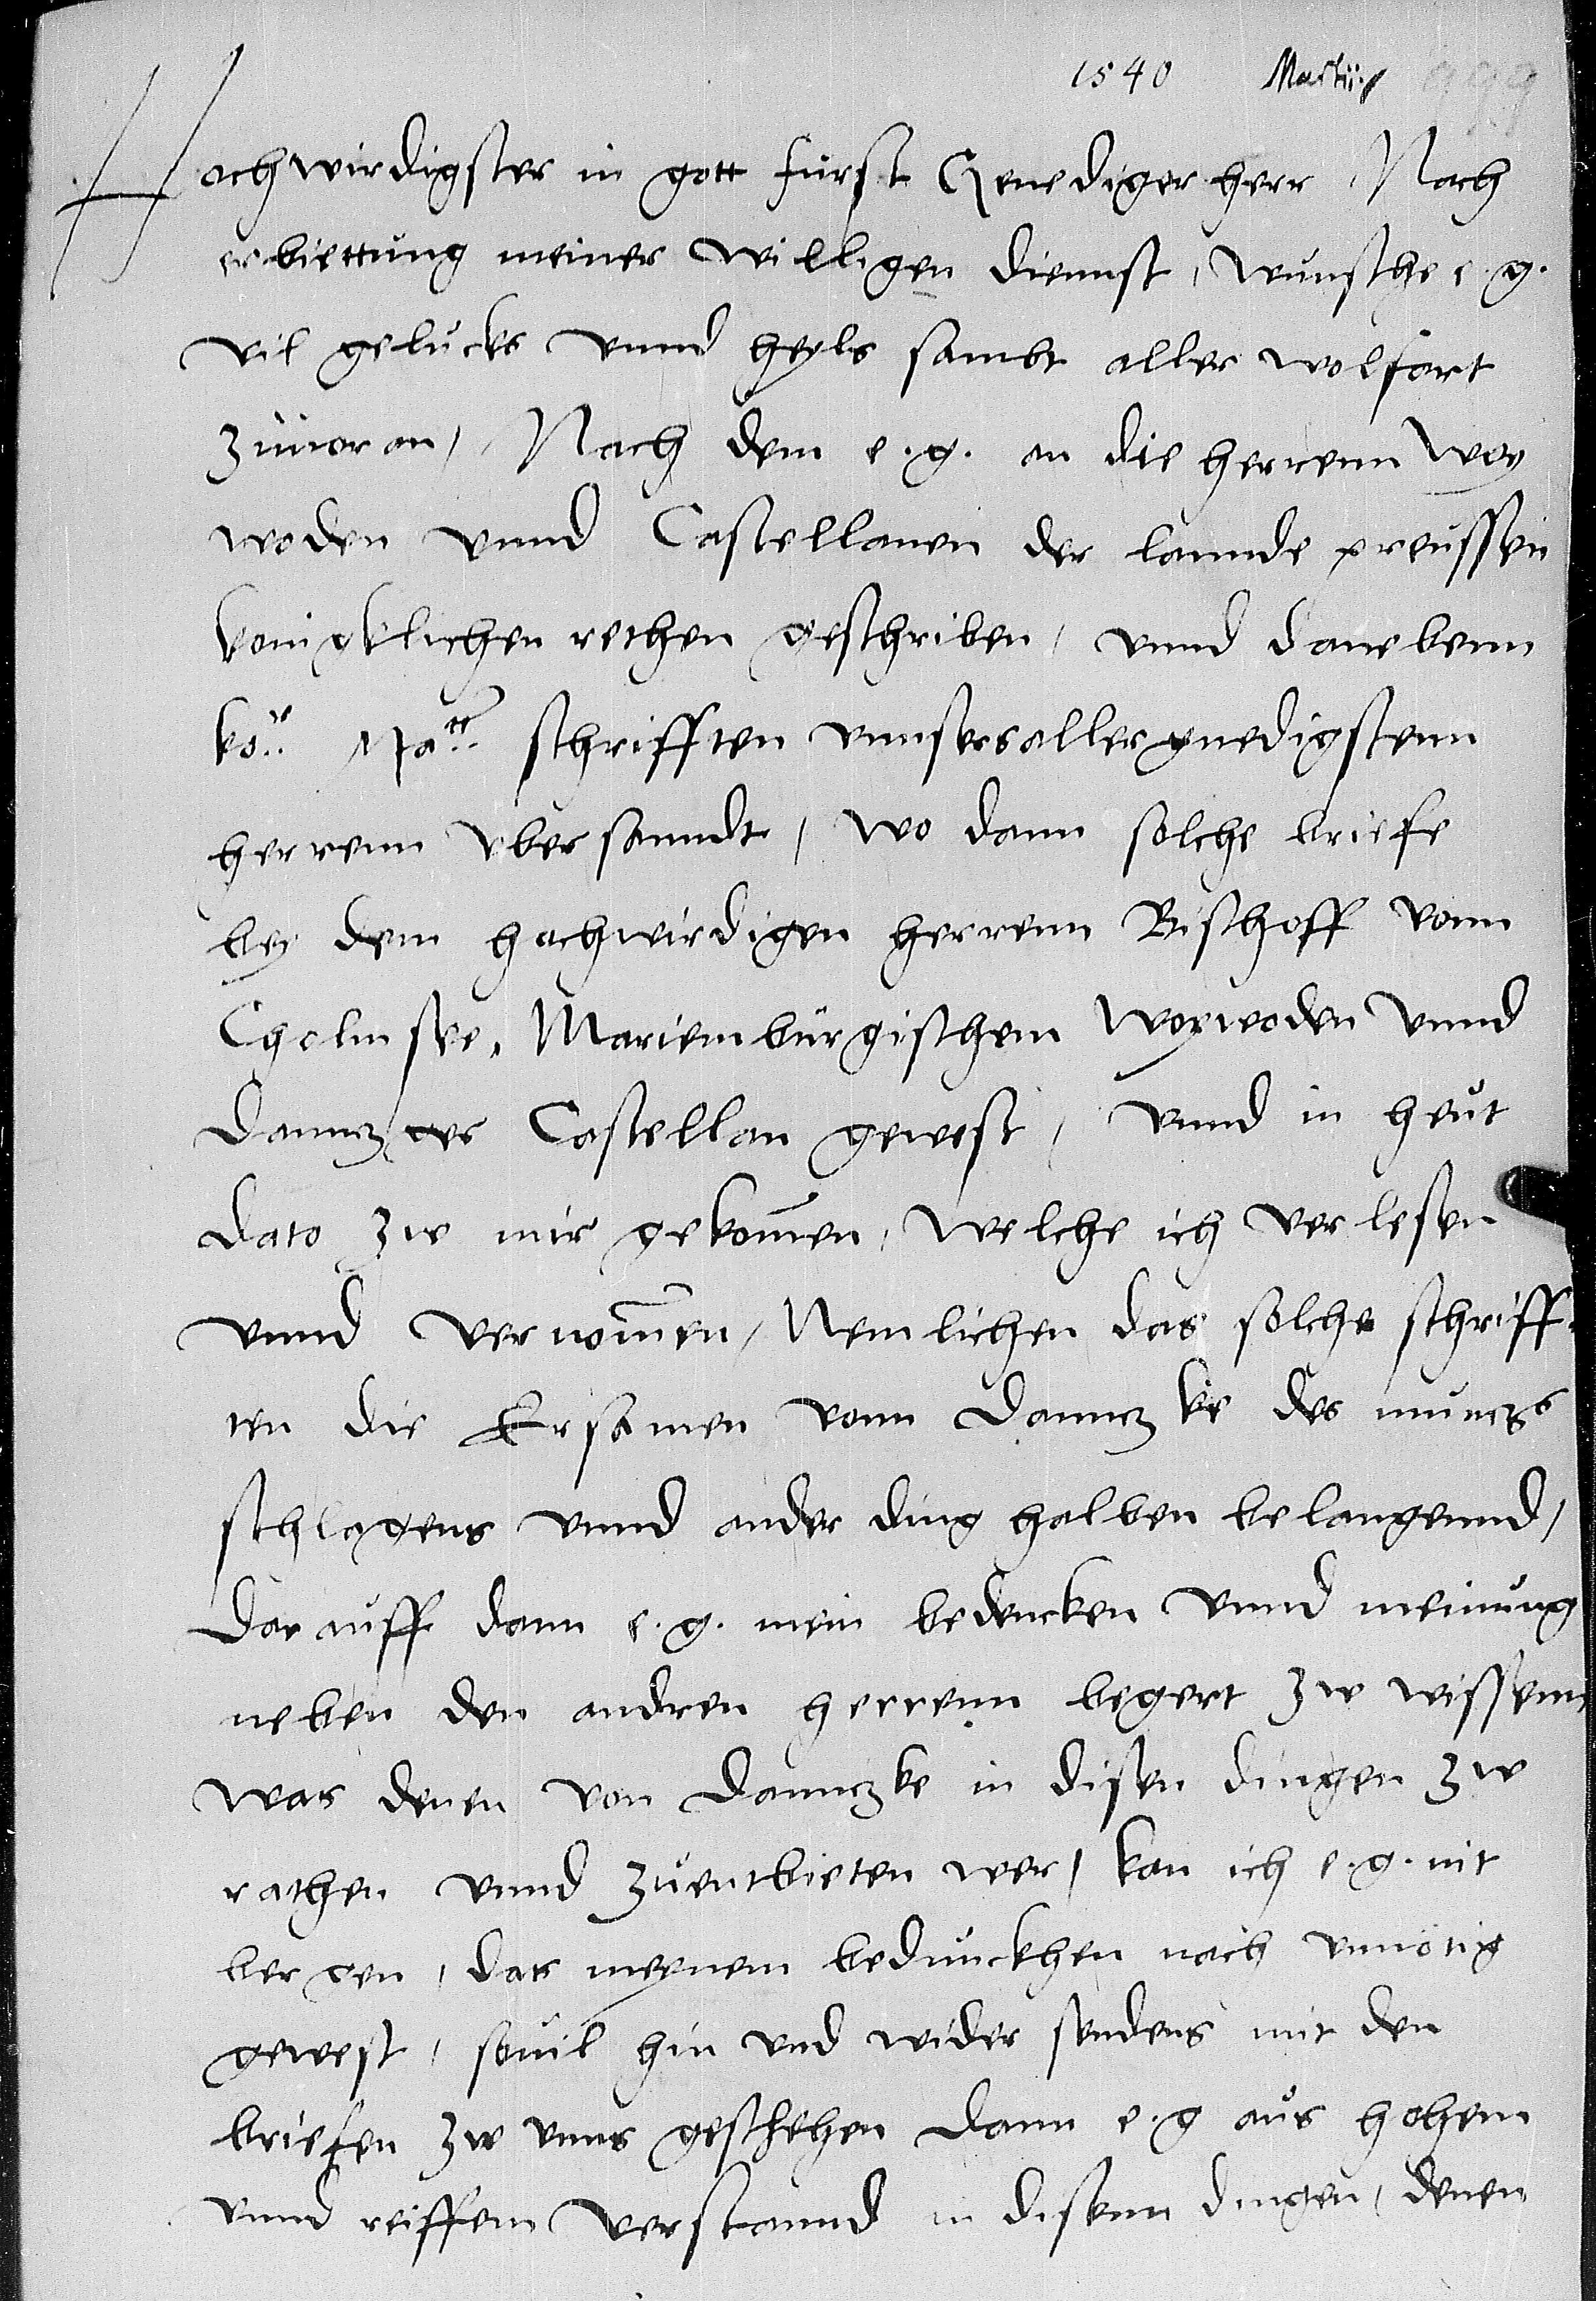 1540 Martii 999
Hochwirdigster in gott fürst Genediger herr, Nach
erbiettung meiner willigen diennst, wunsche e. g.
vil gelucks vnnd heyls sambt aller wolfart
zuuoran, Nach dem e. g. an die herrenn woy
woden vnnd Castellanen der lannde preussen
konigklichen rethen geschriben, vnnd danebenn
ko. Matt. schrifften vnnsers allergnedigstenn
herrenn vbersanndt, wo dann solche briefe
bey dem hochwirdigen herrenn Bischoff vonn
Cholmsee, Mariemburgischem woywoden vnnd
Dannczger Castellan gewest, vnnd in heut
dato zw mir gekomen, welche ich verlesen
vnnd vernomen, Nemlichen das solche schriff¬
ten die Ersamen vonn Dannczke des muncz
schlagens vnnd ander ding halben belangennd,
Darauff dann e. g. mein bedencken vnnd meinung
neben den andren herrenn begert zw wissenn
was denen von Dannczke in disen dingen zw
rathen vnnd zuentbieten wer, kan ich e. g. nit
bergen, das meynem beduncken nach vnnötig
gewest, souil hin vnd wider sendens mit den
briefen zw vnns geschehen dann e. g aus hohem
vnnd reiffem verstannd in disenn dingen, denen